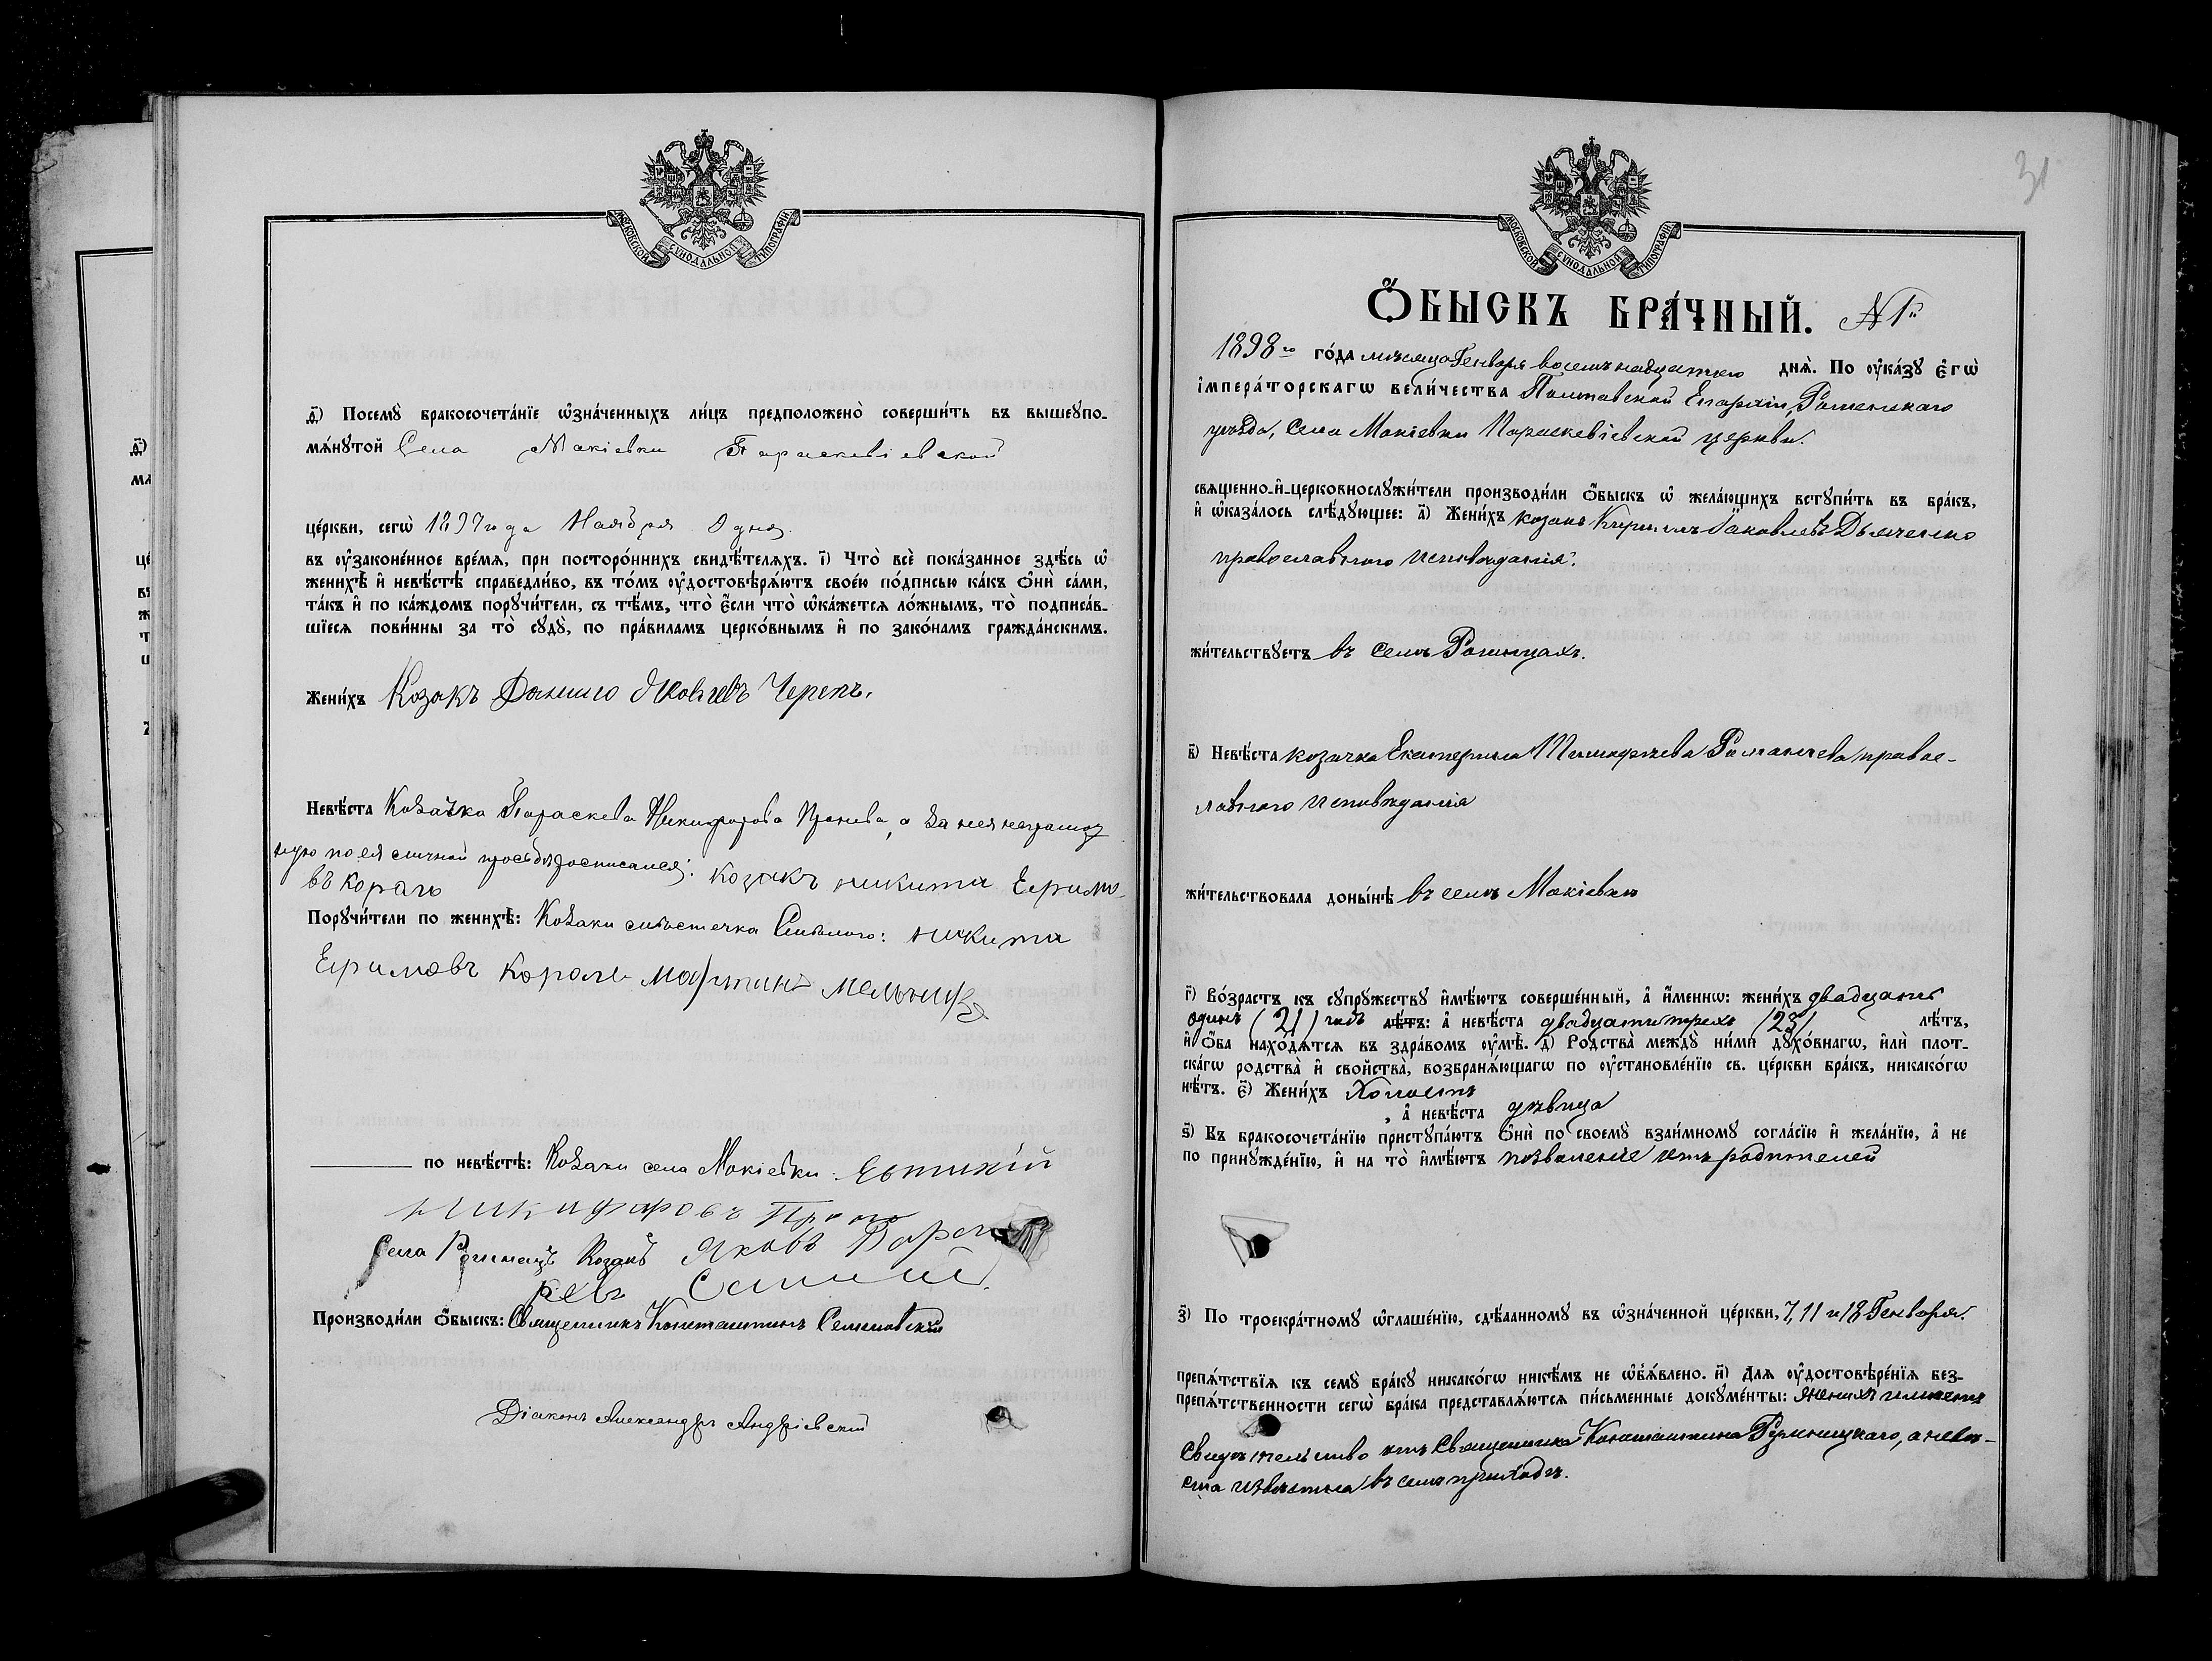 МОСКОВСКОЙ СѴНОДАЛЬНОЙ ТИПОГРАФІИ
д҃) Посемꙋ̀ бракосочета́нїе ѡ҆зна́ченныхъ ли́цъ предположено̀ соверши́ть въ вышеꙋпо-
мѧ́нꙋтой Села Макіевки Параскевіевской
це́ркви, сегѡ̀ 1897 года Ноября 9 дня.
въ ᲂу҆законе́нное вре́мѧ, при посторо́ннихъ свидѣ́телѧхъ. і҃) Что̀ всѐ пока́занное здѣ́сь ѡ҆
женихѣ̀ и҆ невѣ́стѣ справедли́во, въ то́мъ ᲂу҆достовѣрѧ́ютъ свое́ю по́дписью ка́къ ѻ҆нѝ са́ми,
та́къ и҆ по ка́ждомъ порꙋчи́тели, съ тѣ́мъ, что̀ є҆́сли что̀ ѡ҆ка́жетсѧ ло́жнымъ, то̀ подписа́в-
шїесѧ пови́нны за то̀ сꙋдꙋ̀, по пра́виламъ церко́внымъ и҆ по зако́намъ гражда́нскимъ.
Жени́хъ Козакъ Данило Яковлевъ Черепъ.
Невѣ́ста Козачка Параскева Никифорова Пронева, а за нея неграмот
ную по ея личной просьбѣ росписался: козакъ никита Ефимо-
въ Король
Порꙋчи́тели по женихѣ̀: Козаки мѣстечка Смѣлого: никита
Ефимовъ Король мартинъ мельник
по невѣ́стѣ: Козаки села Макіевки: Евтихій
никифоровъ Проно
Села Рогинецъ Козакъ Яковъ
Производи́ли ѻ҆́быскъ: Священникъ Константинъ Семеновскій
Діаконъ Александръ Андріевскій
31
МОСКОВСКОЙ СѴНОДАЛЬНОЙ ТИПОГРАФІИ
Ѻ҆́БЫСКЪ БРА́ЧНЫЙ. № 1й
1898го го́да мѣсяца Генваря восемьнадцатаго днѧ̀. По ᲂу҆ка́зꙋ є҆гѡ̀
і҆мпера́торскагѡ вели́чества Полтавской Епархіи, Роменскаго
уѣзда, села Макіевки Параскевіевской церкви.
свѧщенно-и҆-церковнослꙋжи́тели производи́ли ѻ҆́быскъ ѡ҆ жела́ющихъ встꙋпи́ть въ бра́къ,
и҆ ѡ҆каза́лось слѣ́дꙋющее: а҃) Жени́хъ козакъ Кириллъ Іаковлевъ Дьяченко
православнаго исповѣданія.
жи́тельствꙋетъ въ селѣ Рогинцахъ.
в҃) Невѣ́ста козачка Екатерина Тимофѣева Романчева правос-
лавнаго исповѣданія
жи́тельствовала доны́нѣ въ селѣ Макіевкѣ
г҃) Во́зрастъ къ сꙋпрꙋ́жествꙋ и҆мѣ́ютъ соверше́нный, а҆ и҆́менно: жени́хъ двадцать
одинъ (21) годъ лѣ́тъ: а҆ невѣ́ста двадцати трехъ (23) лѣ́тъ,
и҆ ѻ҆́ба нахо́дѧтсѧ въ здра́вомъ ᲂу҆мѣ̀. д҃) Родства̀ междꙋ̀ ни́ми дꙋхо́внагѡ, и҆лѝ плот-
ска́гѡ родства̀ и҆ свойства̀, возбранѧ́ющагѡ по ᲂу҆становле́нїю св. це́ркви бра́къ, никако́гѡ
нѣ́тъ. є҃) Жени́хъ Холостъ
, а҆ невѣ́ста дѣвица
ѕ҃) Къ бракосочета́нїю пристꙋпа́ютъ ѻ҆нѝ по своемꙋ̀ взаи́мномꙋ согла́сїю и҆ жела́нїю, а҆ не
по принꙋжде́нїю, и҆ на то̀ и҆мѣ́ютъ позволеніе ихъ родителей
з҃) По троекра́тномꙋ ѡ҆глаше́нїю, сдѣ́ланномꙋ въ ѡ҆зна́ченной це́ркви, 7, 11 и 18 Генваря.
препѧ́тствїѧ къ семꙋ̀ бра́кꙋ никако́гѡ никѣ́мъ не ѡ҆б̾ѧ́влено. и҃) Длѧ ᲂу҆достовѣре́нїѧ без-
препѧ́тственности сегѡ̀ бра́ка представлѧ́ютсѧ пи́сьменные докꙋме́нты: женихъ имѣетъ
свидѣтельство отъ Священника Константина, а невѣ-
ста извѣстна въ семъ приходѣ.